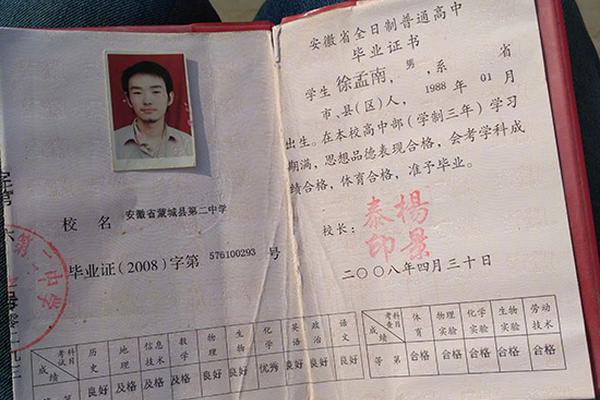 校 名 安徽省蒙城县第二中学
毕业证(2008)字第 576100293 号
考试科目 历史 地理 信息技术 数学 物理 生物 化学 英语 政治 语文
成绩 良好 及格 及格 及格 良好 良好 优秀 良好 良好 良好
安徽省全日制普通高中
毕业证书
学生 徐孟南，男，系 省
市、县(区)人， 1988 年 01 月
出生。在本校高中部(学制三年)学习
期满，思想品德表现合格，会考学科成
绩合格，体育合格，准予毕业。
校长： 楊景泰印
二〇〇八年四月三十日
考查科目 体育 物理实验 化学实验 生物实验 劳动技术
成绩 等第 合格 合格 合格 合格 合格